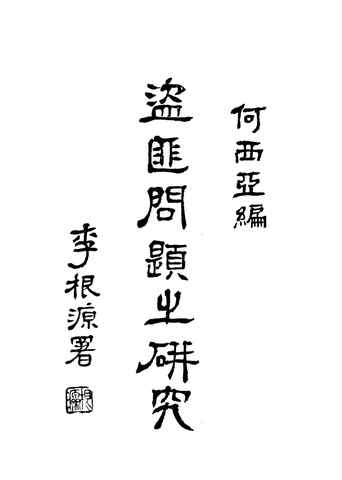 何西亞編
盜匪問題之研究
李根源署